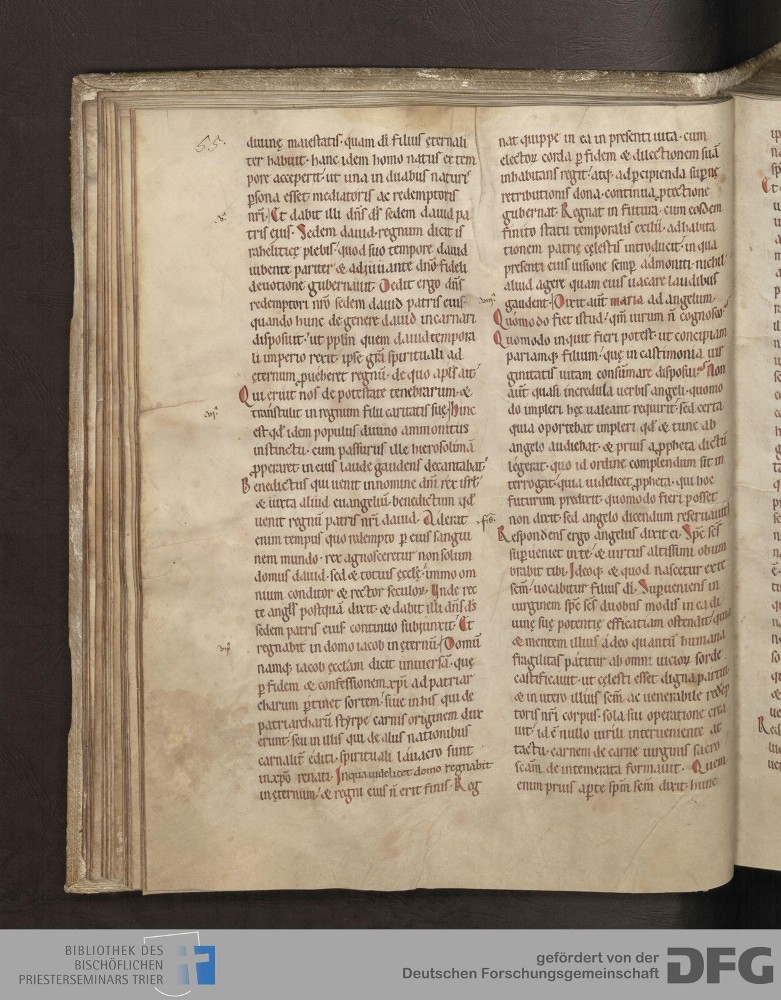 55.
diuinę maiestatis· quam di filius ęternali
ter habuit· hanc idem homo natus ex tem
pore acceperit· ut una in duabus naturis
psona esset mediatoris ac redemptoris
nri· Et dabit illi dns ds sedem dauid pa
tris eius· Sedem dauid· regnum dicit is
rahelitice plebis· quod suo tempore dauid
iubente pariter & adiuuante dno fideli
deuotione gubernauit· Dedit ergo dns
redemptori nro sedem dauid patris eius·
quando hunc de genere dauid incarnari
disposuit· ut pplm quem dauid tempora
li imperio rexit· ipse gra spirituali ad
ęternum pueheret regnu· de quo apls ait·
Qui eruit nos de potestate tenebrarum· &
transtulit in regnum filii caritatis sue· Hinc
est qd idem populus diuino ammonitus
instinctu· cum passurus ille hierosolima
pperaret· in eius laude gaudens decantabat·
Benedictus qui uenit in nomine dni rex isrl·
& iuxta aliud euangeliu· benedictum qd
uenit regnu patris nri dauid· Aderat
enim tempus quo redempto p eius sangui
nem mundo· rex agnosceretur non solum
domus dauid· sed & totius ęcclę· immo om
nium conditor & rector seculor· Unde rec
te angls postqua dixit· & dabit illi dns ds
sedem patris eius· continuo subiunxit· Et
regnabit in domo iacob in ęternu· Domu
namq; iacob ęcclam dicit uniuersa· que
p fidem & confessionem xpi ad patriar
charum ptinet sortem· siue in his qui de
patriarcharu styrpe carnis originem dux
erunt· seu in illis qui de aliis nationibus
carnalit editi· spirituali lauacro sunt
in xpo renati· In qua uidelicet domo regnabit
in ęternum· & regni eius n erit finis· Reg
nat quippe in ea in presenti uita· cum
elector corda p fidem & dilectionem sua
inhabitans regit· atq; ad pcipienda supne
retributionis dona· continua ptectione
gubernat· Regnat in futura· cum eosdem
finito statu temporalis exilii· ad habita
tionem patrie celestis introducit· in qua
presenti eius uisione semp admoniti· nichil
aliud agere quam eius uacare laudibus
gaudent· Dixit aut maria ad angelum·
Quomodo fiet istud· qm uirum n cognosco·
Quomodo inquit fieri potest· ut concipiam
pariamq; filium· que in castimonia uir
ginitatis uitam consummare disposui· Non
aut quasi incredula uerbis angeli· quomo
do impleri hec ualeant requirit· sed certa
quia oportebat impleri qd & tunc ab
angelo audiebat· & prius a ppheta dictu
legerat· quo id ordine complendum sit in
terrogat· quia uidelicet ppheta· qui hoc
futurum predixit· quomodo fieri posset
non dixit· sed angelo dicendum reseruauit·
Respondens ergo angelus dixit ei· Sps scs
supueniet in te· & uirtus altissimi obum
brabit tibi· Ideoq; & quod nascetur ex te
scm· uocabitur filius di· Supueniens in
uirginem sps scs duobus modis in ea di
uine sue potentie efficatiam ostendit· quia
& mentem illius adeo quantu humana
fragilitas patitur ab omni uicior sorde
castificauit· ut celesti esset digna partu·
& in utero illius scm ac uenerabile redep
toris nri corpus· sola sui operatione crea
uit· id e nullo uirili interueniente at
tactu· carnem de carne uirginis sacro
scam· de intemerata formauit· Quem
enim prius apte spm scm dixit· hunc
BIBLIOTHEK DES
BISCHÖFLICHEN
PRIESTERSEMINARS TRIER
gefördert von der
Deutschen Forschungsgemeinschaft
DFG